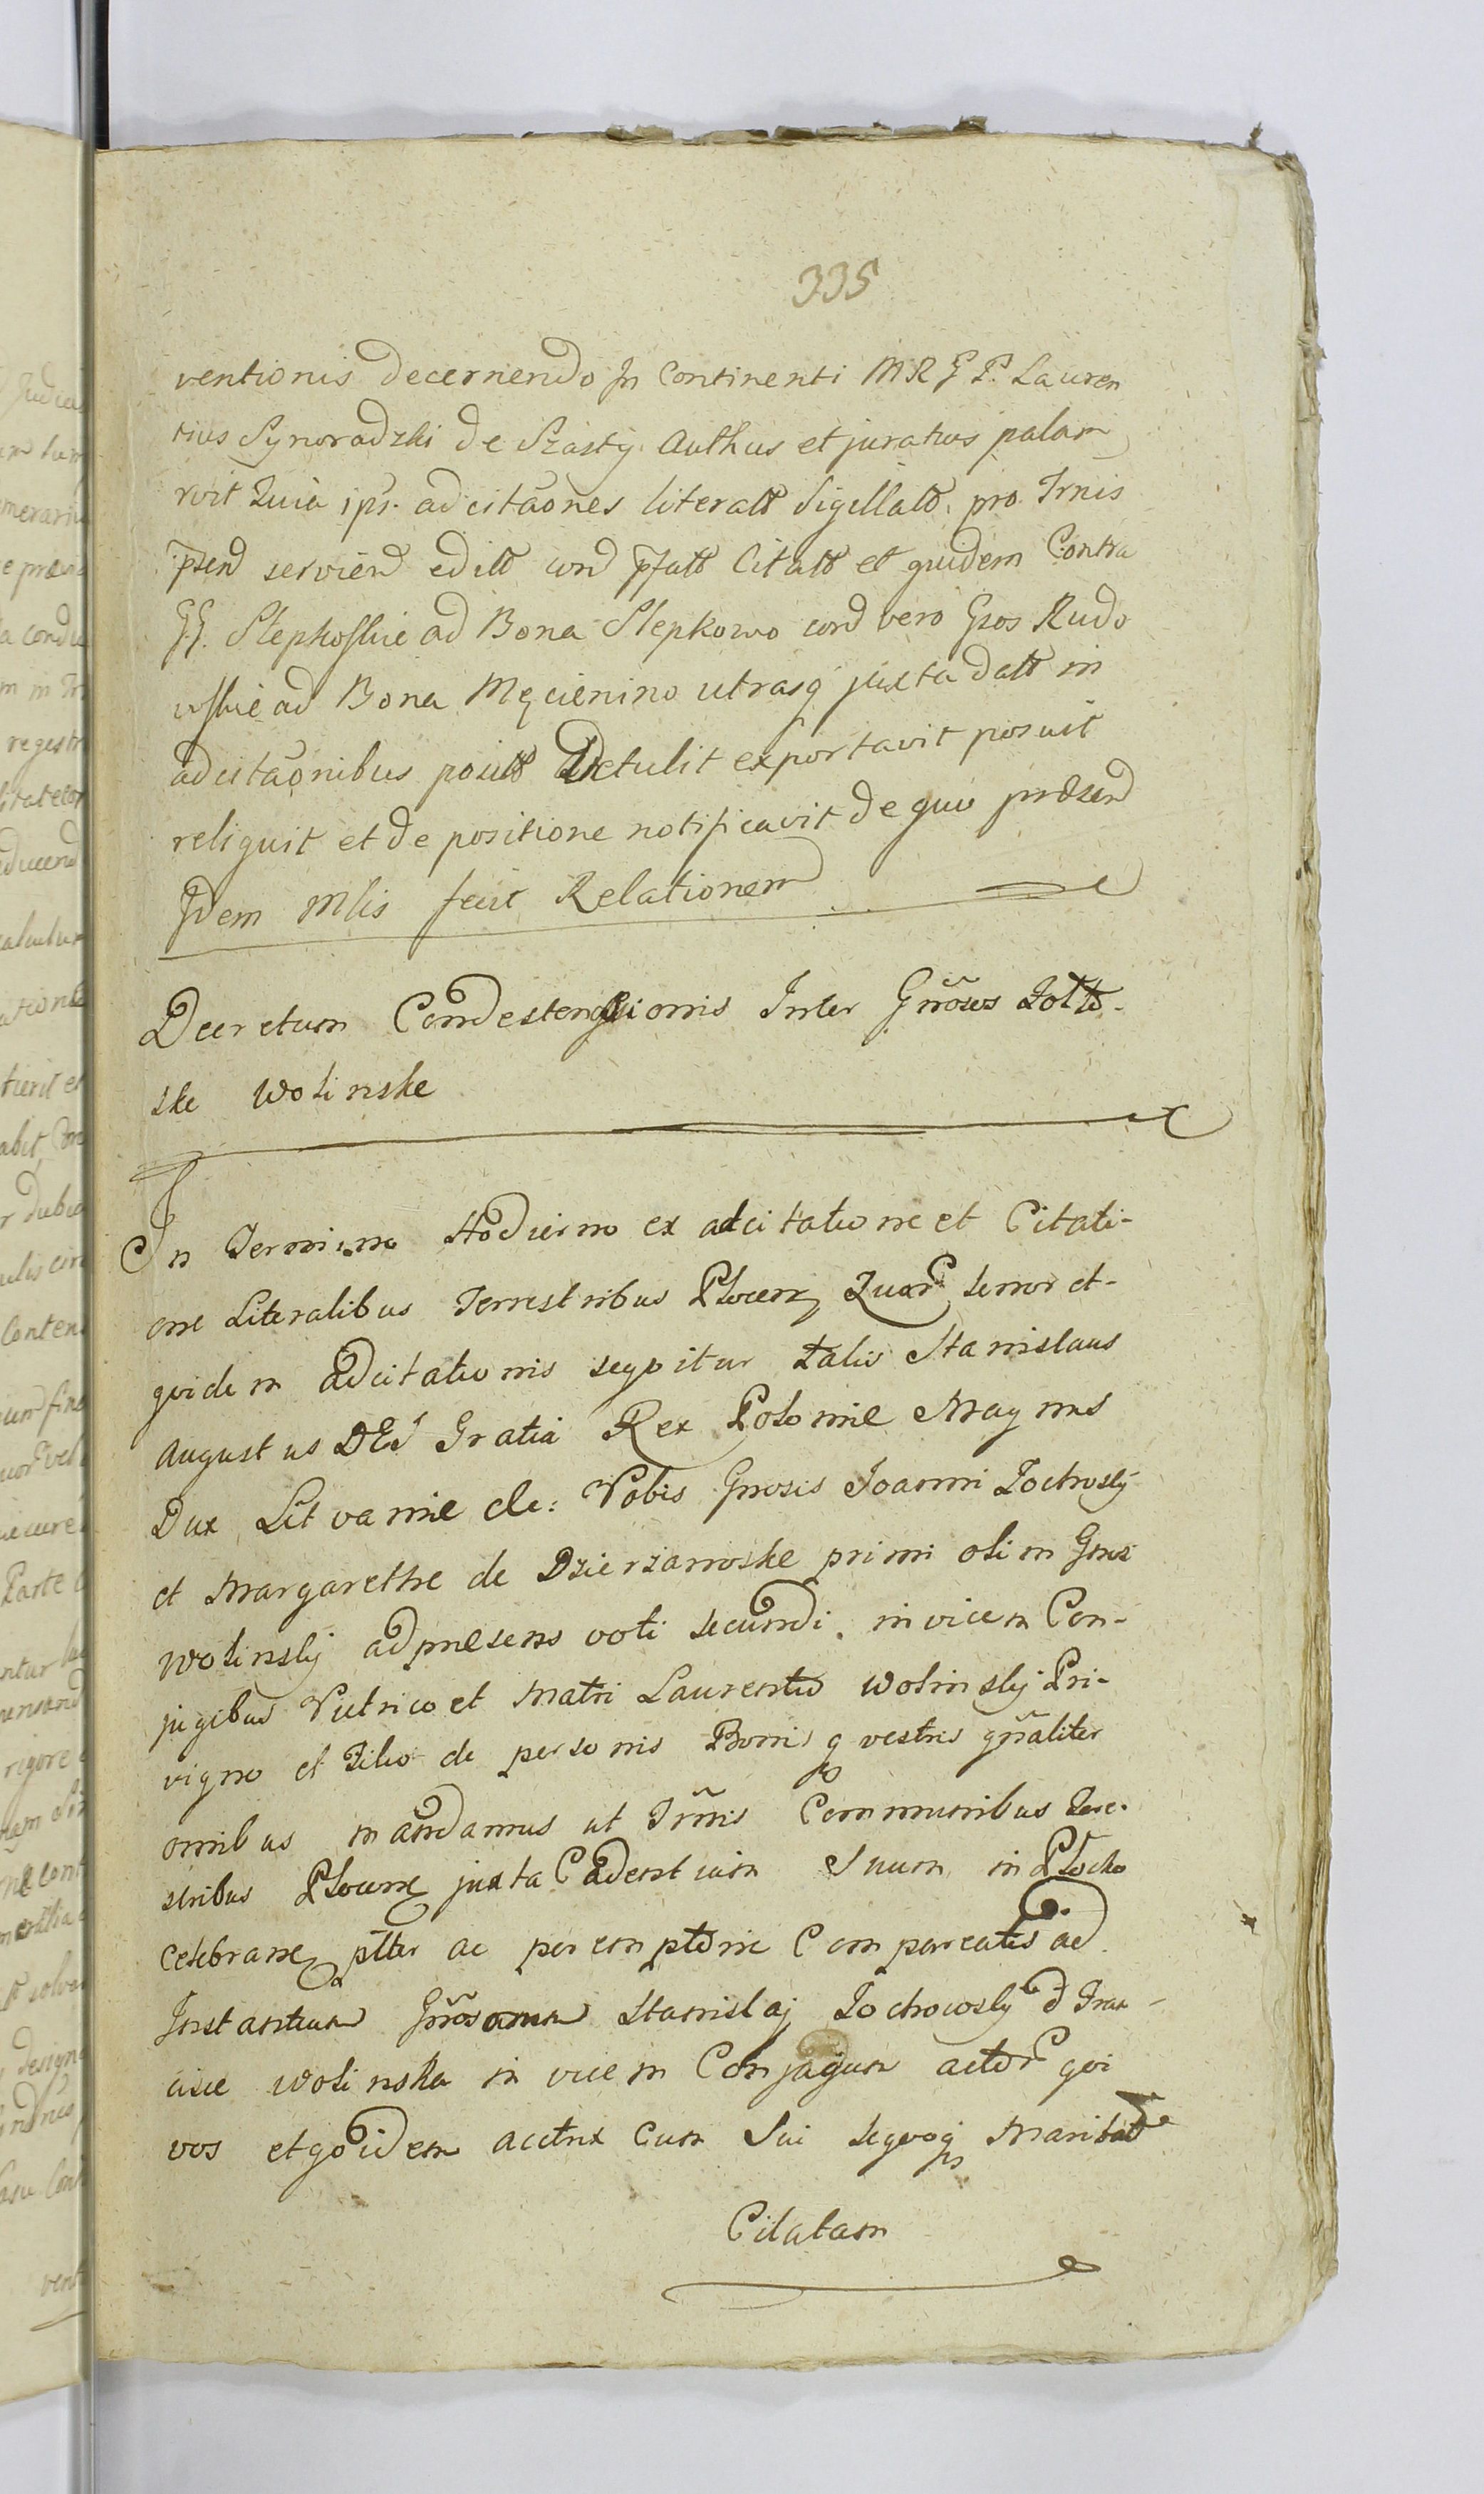 335
ventionis decernendo In Continenti M R G P. Lauren
tius Synoradzki de Szasty Authus et juratus palam
rvit Quia ips. adcitãones literatt Sigillatt. pro Trnis
psend serviend editt cond pfatt Citatt et quidem Contra
GG. Slepkoskie ad Bona Slepkowo cond vero Gsos Rudo
wskie ad Bona Męcienino utrasq juxta datt in
adcitãonibus positt Detulit exportavit posuit
reliquit et de positione notificavit de quo præsend
Idem Mlis fecit Relationem
Decretum Condescensionis Inter Gnõsos Zotto-
ske Wolinske
In Termino Hodierno ex adcitatione et Citati-
one Literalibus Terrestribus Plocens Quar tenor et-
quidem adcitationis seqvitur talis Stanislaus
Augustus DEI Gratia Rex Polonie Magnus
Dux Litvanie etc: Vobis Gnosis Joanni Zochosky
et Margarethe de Dzierzanoske primi olim Gnosi
Wolinsky ad presens voti secundi. invicem Con-
jugibus Vitrico et Matri Laurentio Wolinsky Pri-
vigno et Filio de personis Bonis q vestris gnãliter
omnibus mandamus ut Trñis Communibus Terre-
stribus Plocens juxta Cadentiam Suum in Plocko
celebrans ptter ac peremptorie Compareatis ad
Instantiam Gnõsorum Stanislaj Zochowsky
cisce Wolinska in vicem Conjugum actor qvi
vos et qvidem actrix cum Sui seqvoq Maritali
Citatam